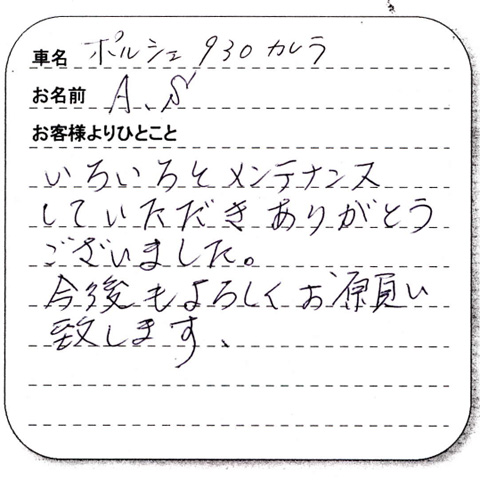 車名 ポルシェ 930 カレラ
お名前 A.S
お客様よりひとこと
いろいろとメンテナンス
していただきありがとう
ございました。
今後もよろしくお願い
致します、